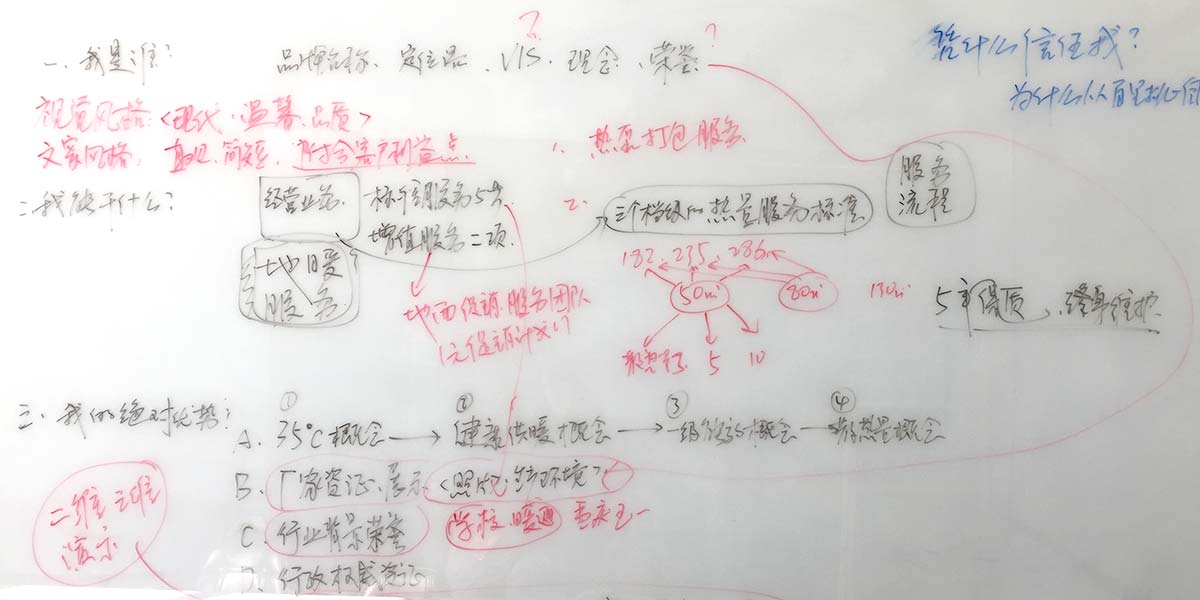 一、我是谁?
品牌名称、定位品、VIS、理念、荣誉
?
给什么信任我?
为什么从
视觉风格:<现代、温馨、品质>
文案风格: 直观、简短、符合客户利益点
1、热泵打包服务
服务流程
二、我能干什么?
经营业务
标准服务5步
增值服务二项
2、
三个档级的热量服务标准
地暖服务
?
182、235、286
50㎡
80㎡
130㎡
地面促销、服务团队
1元促销计划!?
5年保质、终身维护
5
10
三、我的绝对优势:
① ② ③ ④
A、35℃概念 → 健康供暖概念 → 一级能效概念 → 散热量概念
B、厂家资证、展示<照片、生产环境>
C、行业背景荣誉
学校、暖通
D、行政权威资证
二维三维演示